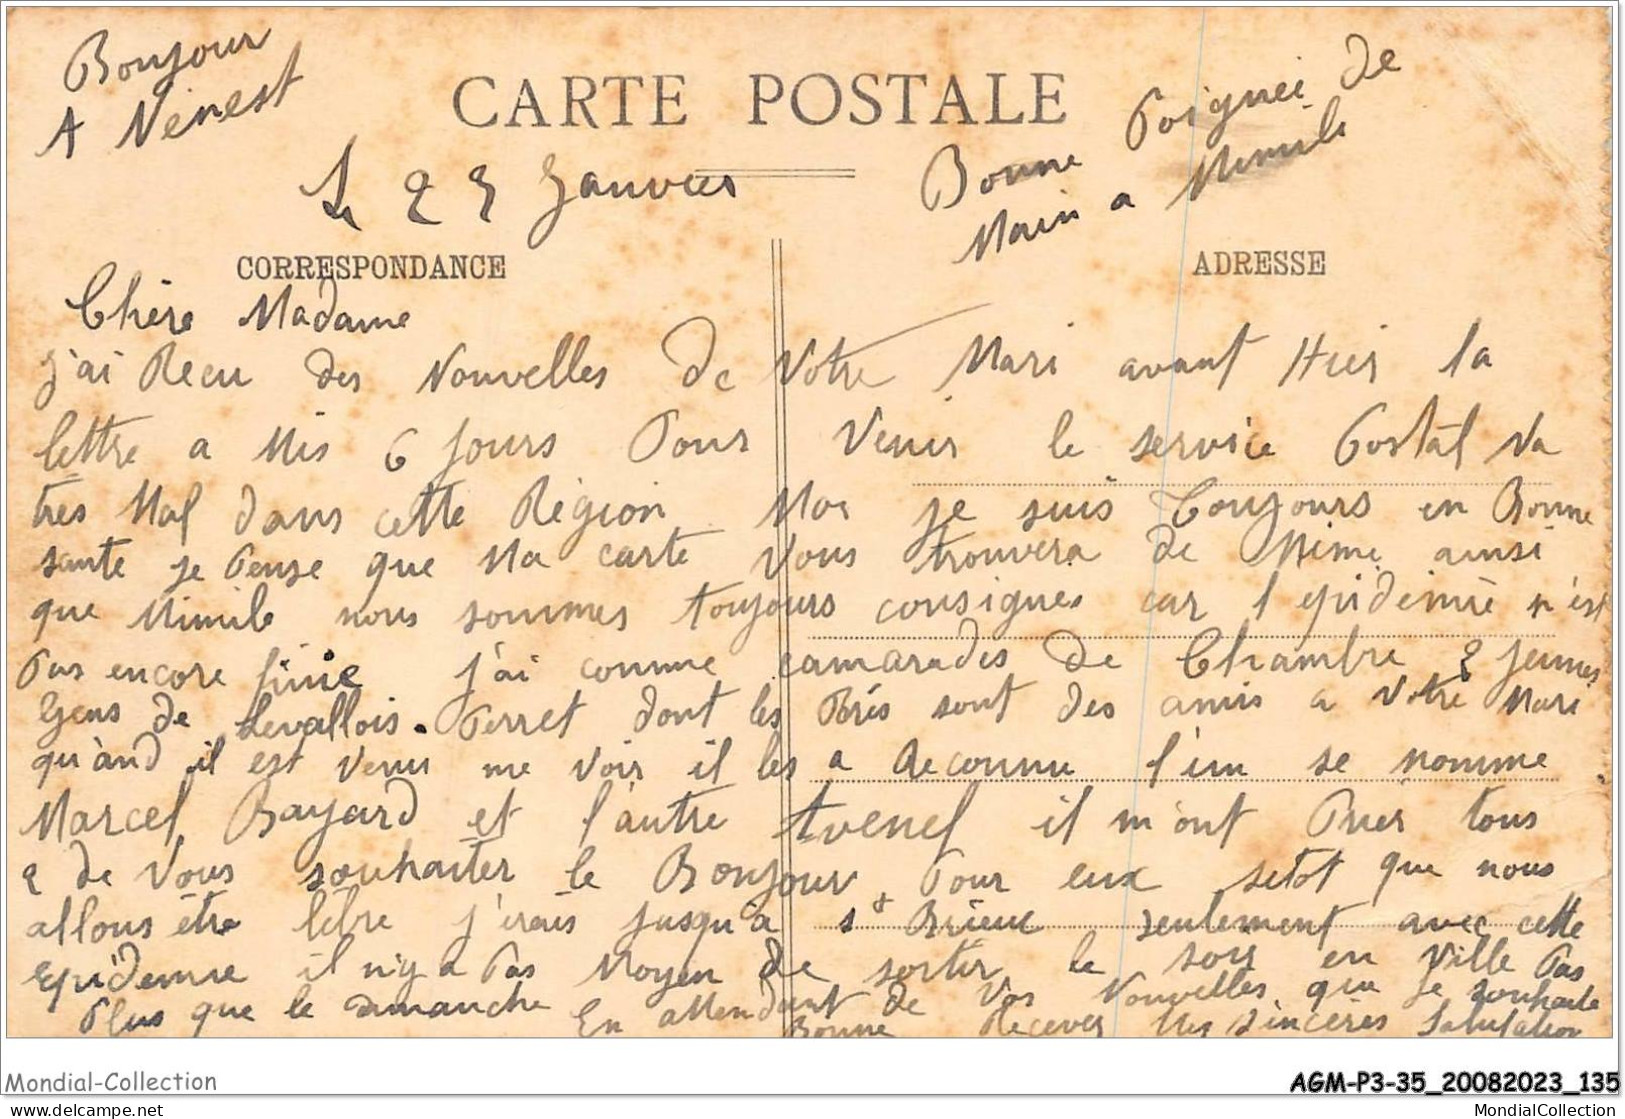 Bonjour
A Nenest
CARTE POSTALE
Bonne Poignei de
Main a Mimile
Le 25 Janvier
CORRESPONDANCE
ADRESSE
Chère Madame
j'ai Recu des Nouvelles de Votre Mari avant Hier la
lettre a Mis 6 Jours Pour Venir le service Postal Va
très Mal dans cette Région Moi je suis Toujours en Bonne
sante je Pense que Ma carte Vous trouvera de Mime ainsi
que Mimile nous sommes toujours consignes car l'epidemie n'est
Pas encore finie j'ai comme camarades de Chambre 2 jeunes
Gens de Levallois-Perret dont les Pères sont des amis a Votre Mari
qu'and il est Venu me Voir il les a Reconnu l'un se nomme
Marcel Bayard et l'autre Avenel il m'ont Prier tous
2 de Vous souhaiter le Bonjour Pour eux sitot que nous
allons être libre j'irais jusqu'a st Brieuc seulement avec cette
Epidemie il n'y a Pas Moyen de sortir le soir en Ville Pas
Plus que le dimanche En attendant de Vos Nouvelles que je souhaite
Bonne Recever Mes Sincères Salutation
Mondial-Collection
AGM-P3-35_20082023_135
https://www.delcampe.net
MondialCollection